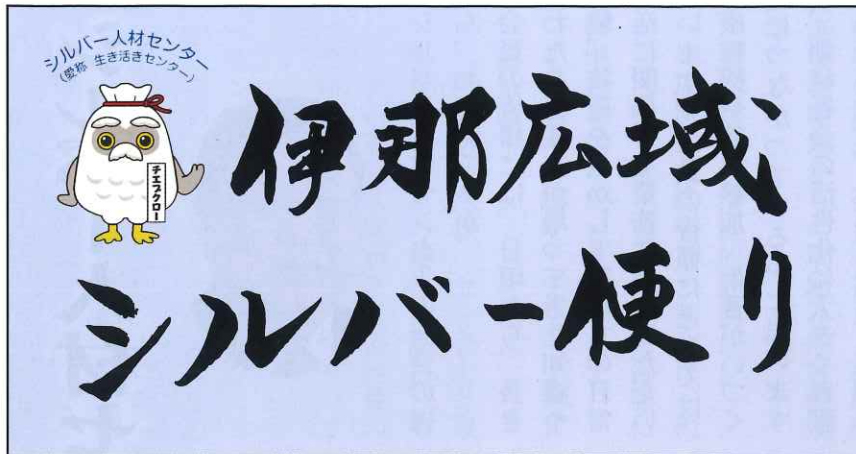 シルバー人材センター
(愛称 生き活きセンター)
チエブクロー
伊那広域
シルバー便り